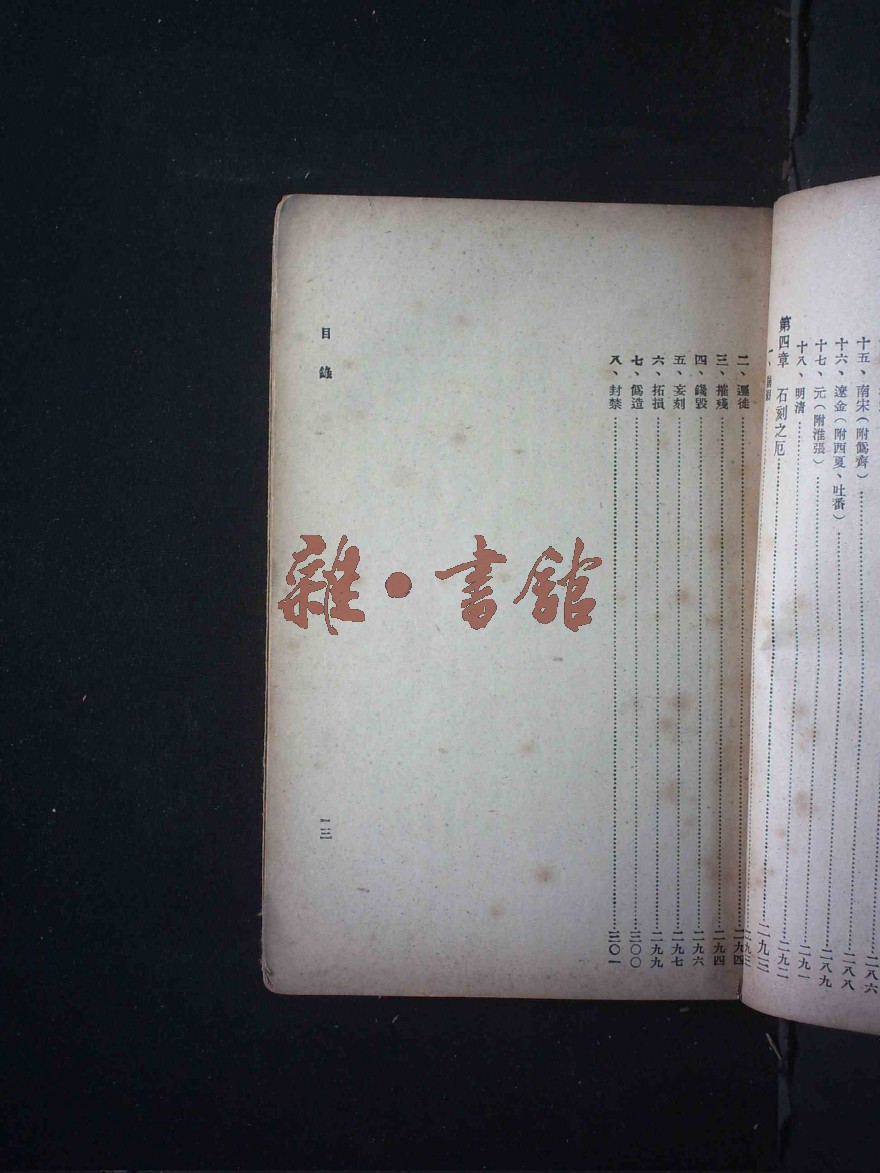 十五、南宋(附僞齊)……二八六
十六、遼金(附西夏、吐番)……二八八
十七、元(附淮張)……二八九
十八、明清……二九一
第四章 石刻之厄……二九二
一、……二九三
二、遷徙……二九四
三、摧殘……二九四
四、毀……二九六
五、妄刻……二九七
六、拓損……二九九
七、僞造……三〇〇
八、封禁……三〇一
目錄
一三
雜·書館